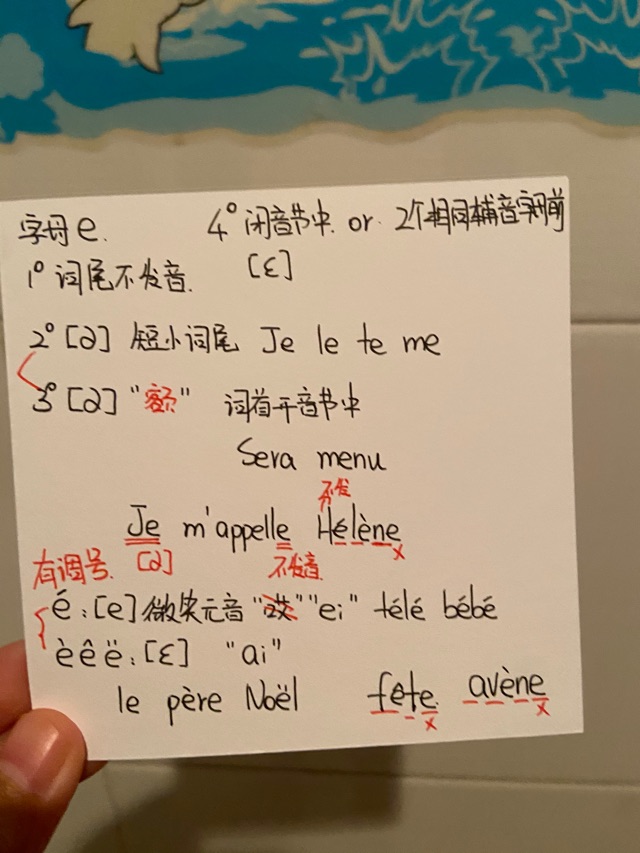 字母e.
4° 闭音节中. or. 2个相同辅音字母前
[ε]
1° 词尾不发音.
2° [ə] 短小词尾 Je le te me
3° [ə] "额" 词首开音节中
Sera menu
不发
Je m'appelle Hélène
x
有调号. [ə] 不发音
é : [e] 微笑元音 "哎" "ei" télé bébé
è ê ë : [ε] "ai"
le père Noël fête. avène
x x